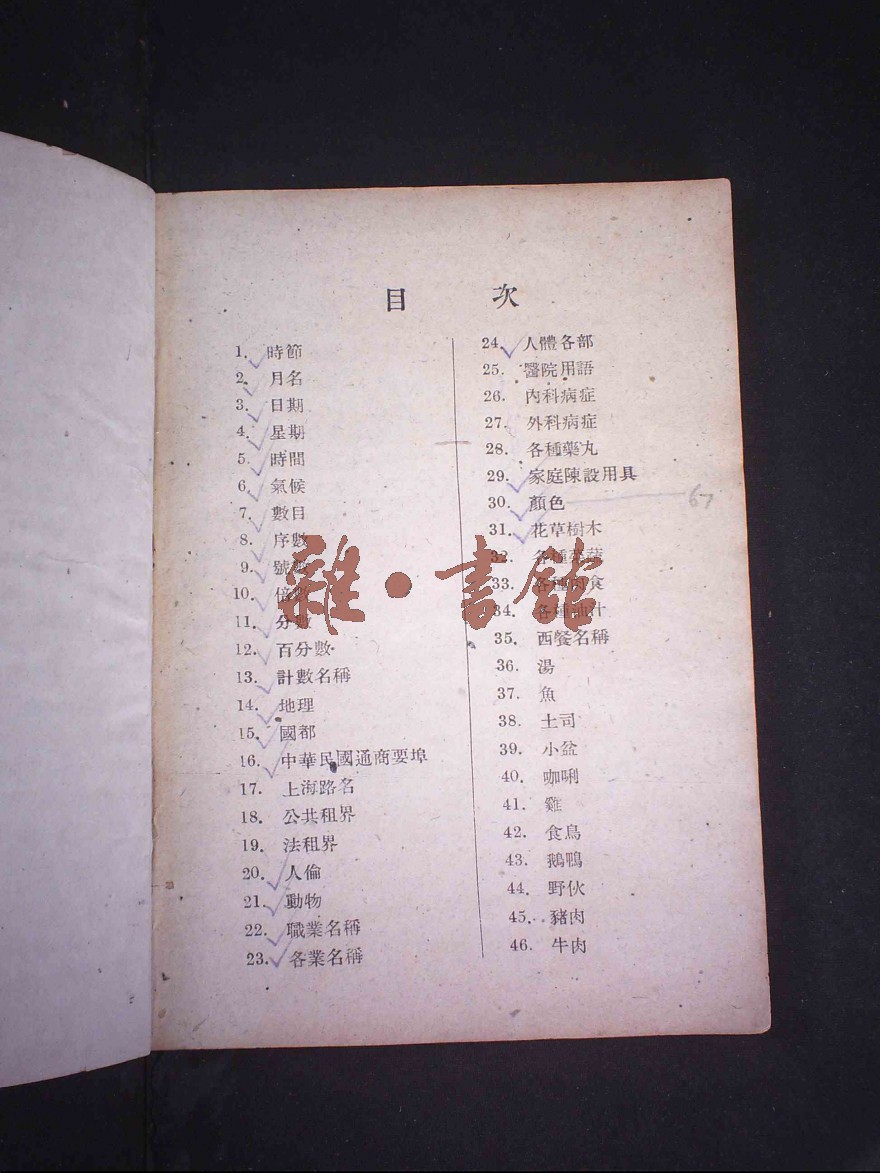 目 次
1. 時節
2. 月名
3. 日期
4. 星期
5. 時間
6. 氣候
7. 數目
8. 序數
9. 號數
10. 倍數
11. 分數
12. 百分數
13. 計數名稱
14. 地理
15. 國都
16. 中華民國通商要埠
17. 上海路名
18. 公共租界
19. 法租界
20. 人倫
21. 動物
22. 職業名稱
23. 各業名稱
24. 人體各部
25. 醫院用語
26. 內科病症
27. 外科病症
28. 各種藥丸
29. 家庭陳設用具
30. 顏色 67
31. 花草樹木
32. 各種菜蔬
33. 各種肉食
34. 各種油汁
35. 西餐名稱
36. 湯
37. 魚
38. 土司
39. 小盆
40. 咖唎
41. 雞
42. 食鳥
43. 鵝鴨
44. 野伙
45. 豬肉
46. 牛肉
雜·書館